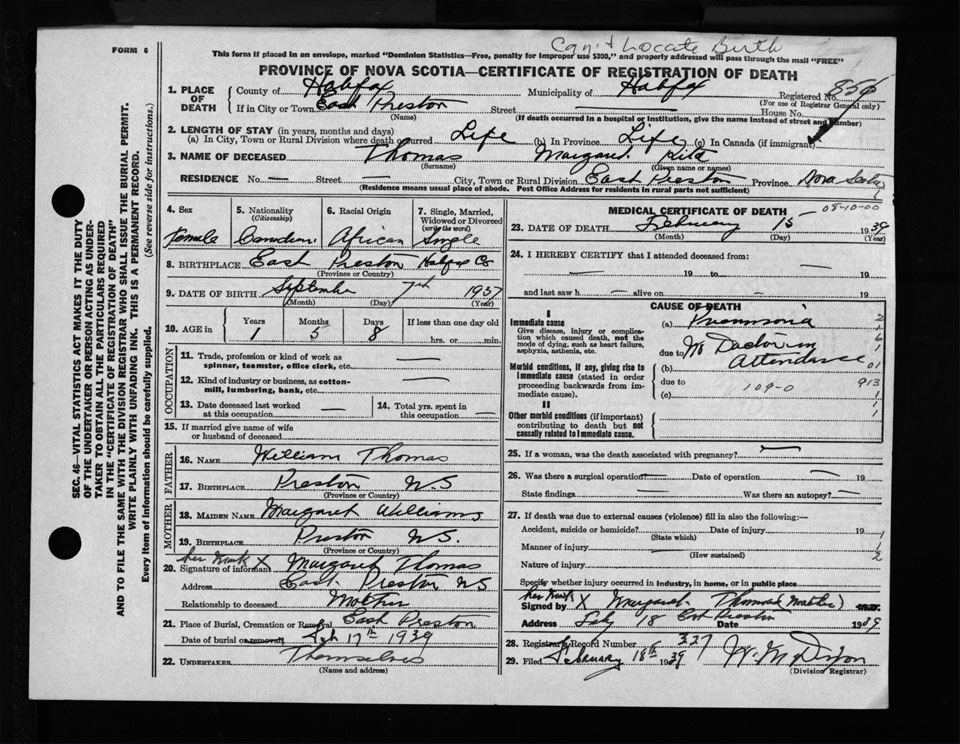 FORM 6
Can't Locate Birth
This form if placed in an envelope, marked "Dominion Statistics—Free, penalty for improper use $300," and properly addressed will pass through the mail "FREE"
PROVINCE OF NOVA SCOTIA—CERTIFICATE OF REGISTRATION OF DEATH
SEC. 46—VITAL STATISTICS ACT MAKES IT THE DUTY
OF THE UNDERTAKER OR PERSON ACTING AS UNDER-
TAKER TO OBTAIN ALL THE PARTICULARS REQUIRED
IN THE "CERTIFICATE OF REGISTRATION OF DEATH"
AND TO FILE THE SAME WITH THE DIVISION REGISTRAR WHO SHALL ISSUE THE BURIAL PERMIT.
WRITE PLAINLY WITH UNFADING INK. THIS IS A PERMANENT RECORD.
Every item of information should be carefully supplied. (See reverse side for instructions.)
1. PLACE OF DEATH County of Halifax Municipality of Halifax Registered No.
(For use of Registrar General only)
If in City or Town East Preston Street House No.
(Name) (If death occurred in a hospital or institution, give the name instead of street and number)
2. LENGTH OF STAY (in years, months and days)
(a) In City, Town or Rural Division where death occurred Life (b) In Province Life (c) In Canada (if immigrant)
3. NAME OF DECEASED Thomas Margaret Rita
(Surname) (Given name or names)
RESIDENCE No. — Street — City, Town or Rural Division East Preston Province Nova Scotia
(Residence means usual place of abode. Post Office Address for residents in rural parts not sufficient)
4. Sex Female
5. Nationality (Citizenship) Canadian
6. Racial Origin African
7. Single, Married, Widowed or Divorced (write the word) Single
8. BIRTHPLACE East Preston Halifax Co
(Province or Country)
9. DATE OF BIRTH September 7th 1937
(Month) (Day) (Year)
10. AGE in Years 1 Months 5 Days 8 If less than one day old hrs. or min.
OCCUPATION
11. Trade, profession or kind of work as spinner, teamster, office clerk, etc. —
12. Kind of industry or business, as cotton-mill, lumbering, bank, etc. —
13. Date deceased last worked at this occupation —
14. Total yrs. spent in this occupation —
15. If married give name of wife or husband of deceased
FATHER
16. NAME William Thomas
17. BIRTHPLACE Preston N.S
(Province or Country)
MOTHER
18. MAIDEN NAME Margaret Williams
19. BIRTHPLACE Preston N.S.
(Province or Country)
her Mark X
20. Signature of informant Margaret Thomas
Address East Preston N S
Relationship to deceased Mother
21. Place of Burial, Cremation or Removal East Preston
Date of burial or removal Feb 17th 1939
22. UNDERTAKER Themselves
(Name and address)
MEDICAL CERTIFICATE OF DEATH
0840-00
23. DATE OF DEATH February 15 1939
(Month) (Day) (Year)
24. I HEREBY CERTIFY that I attended deceased from:
— 19 to — 19
and last saw h — alive on — 19
CAUSE OF DEATH
I
Immediate cause
Give disease, injury or complication which caused death, not the mode of dying, such as heart failure, asphyxia, asthenia, etc.
(a) Pneumonia
due to No Doctor in
Morbid conditions, if any, giving rise to immediate cause (stated in order proceeding backwards from immediate cause).
(b) Attendance
due to 109-0
(c)
II
Other morbid conditions (if important) contributing to death but not causally related to immediate cause.
2
1
6
1
01
913
1
1
25. If a woman, was the death associated with pregnancy? —
26. Was there a surgical operation? — Date of operation — 19
State findings — Was there an autopsy? —
27. If death was due to external causes (violence) fill in also the following:—
Accident, suicide or homicide? Date of injury 19
(State which)
Manner of injury
(How sustained)
Nature of injury
1
2
Specify whether injury occurred in industry, in home, or in public place
her Mark X
Signed by Margaret Thomas (Mother) M.D.
Address East Preston Date Feb 18 1939
28. Registrar's Record Number 327
29. Filed February 18th 1939 W. M. Dixon
(Division Registrar)